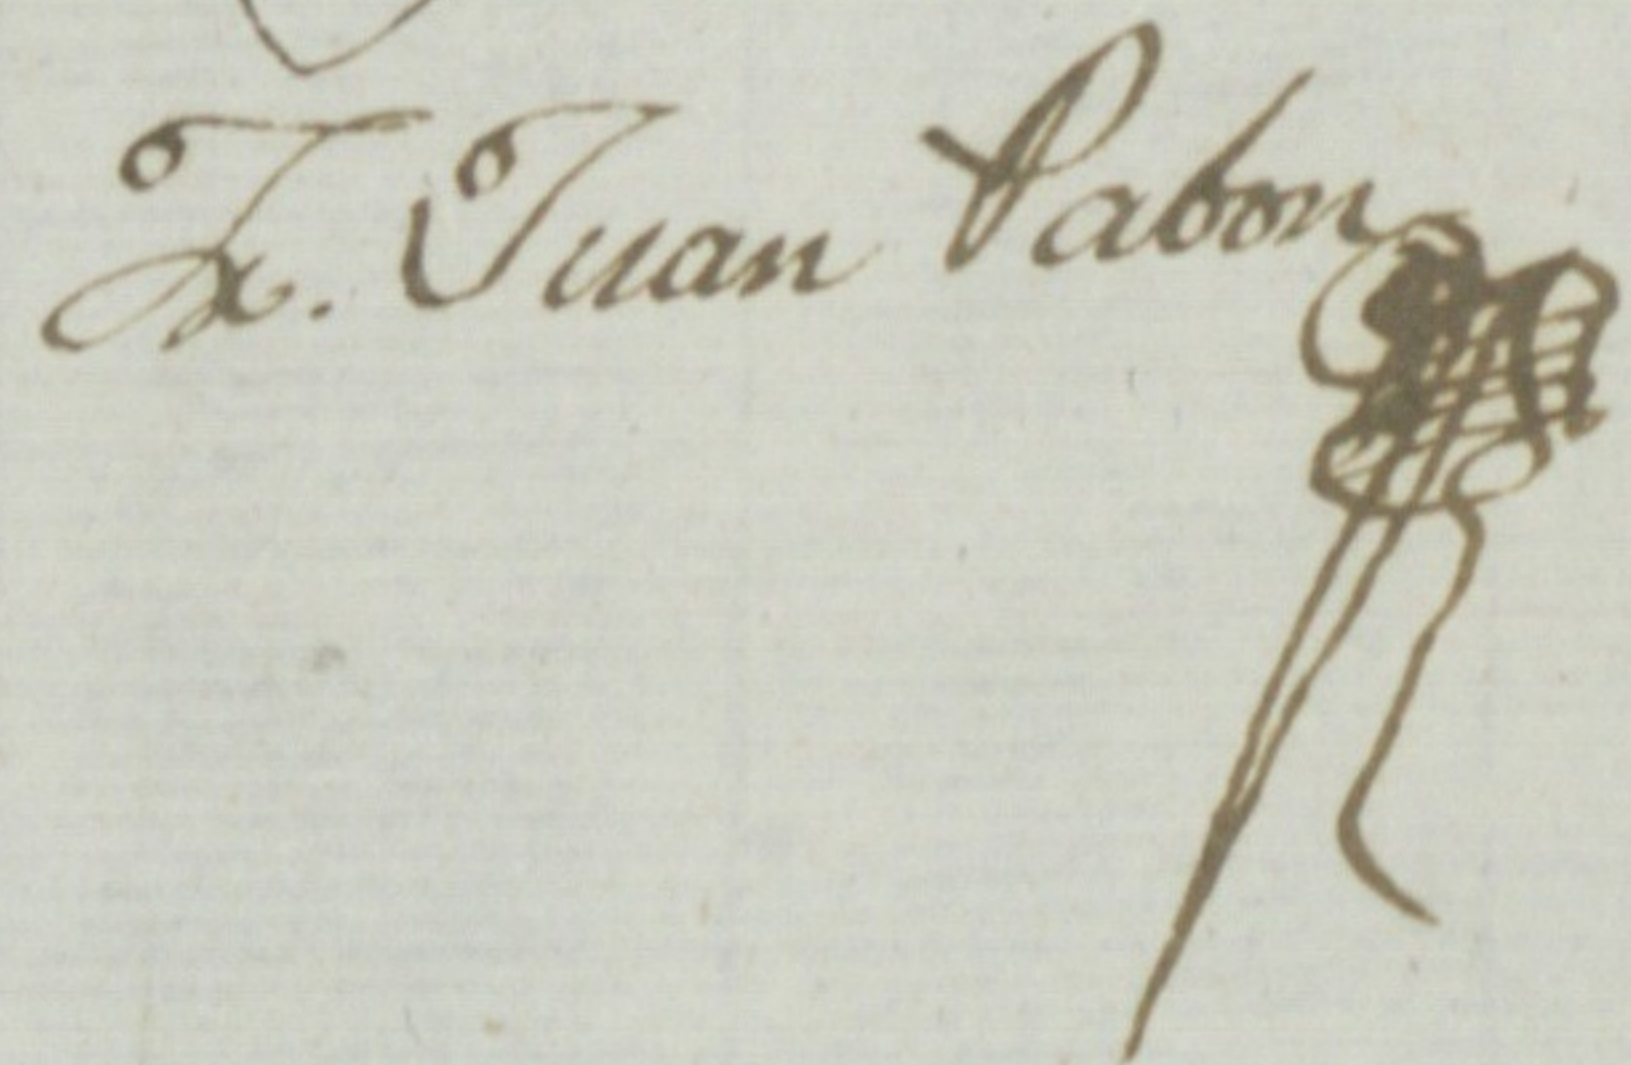 Fr. Juan Pabon